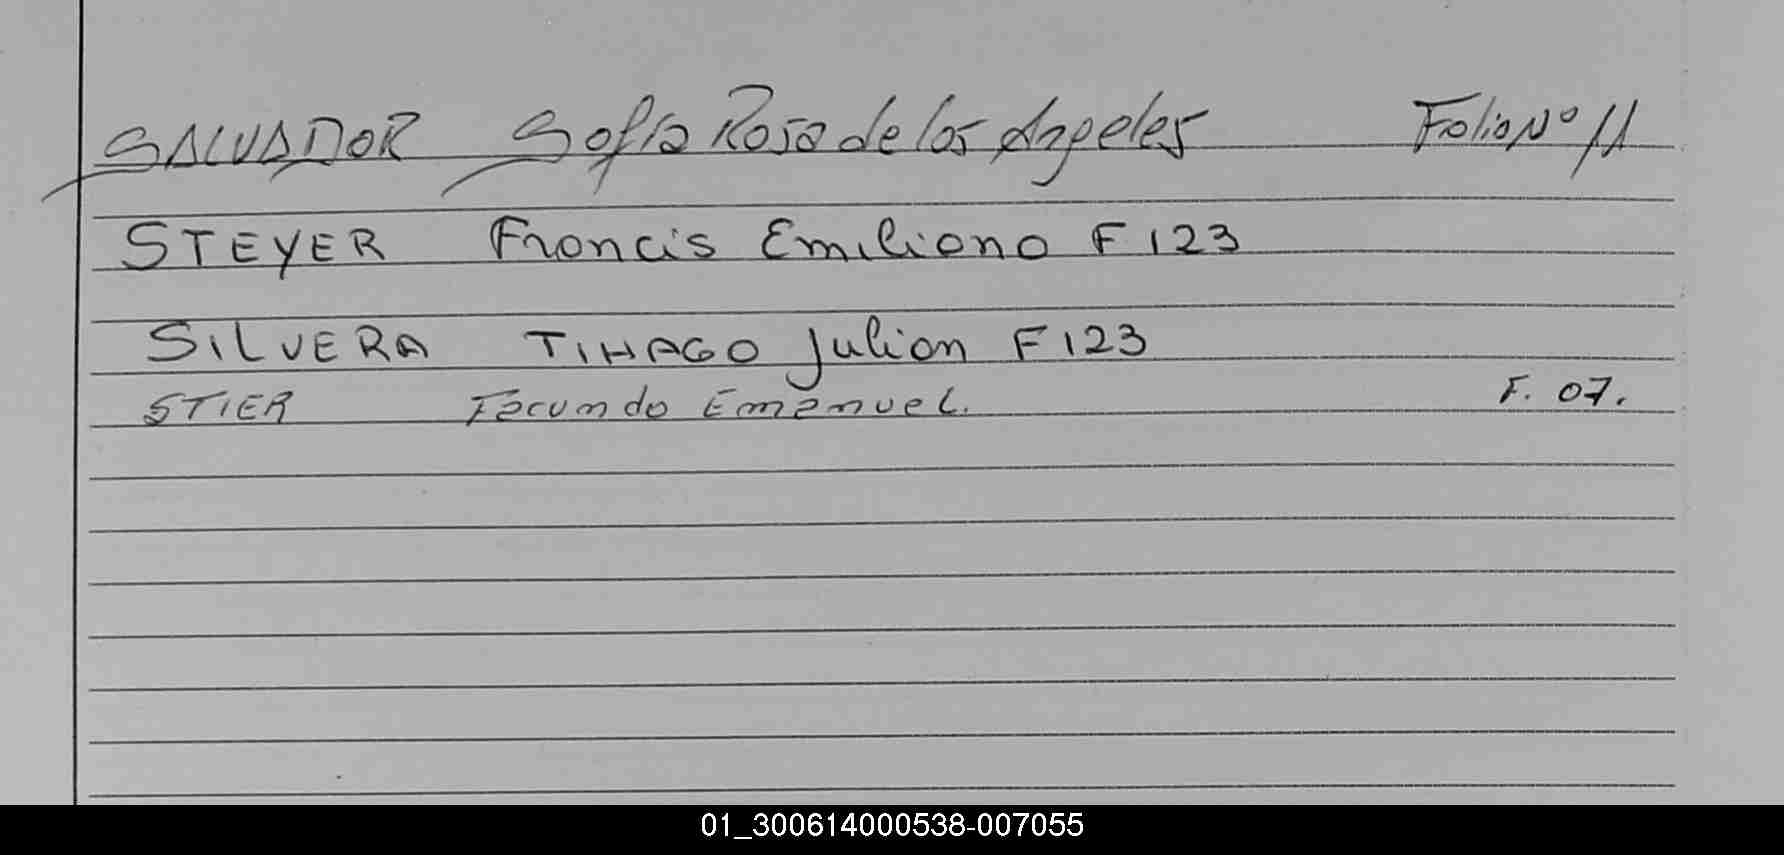 SALVADOR Sofia Rosa de los Angeles Folio Nº 11
STEYER Francis Emiliano F 123
SILVERA TIHAGO Julian F 123
STIER Facundo Emanuel. F. 07.
01_300614000538-007055